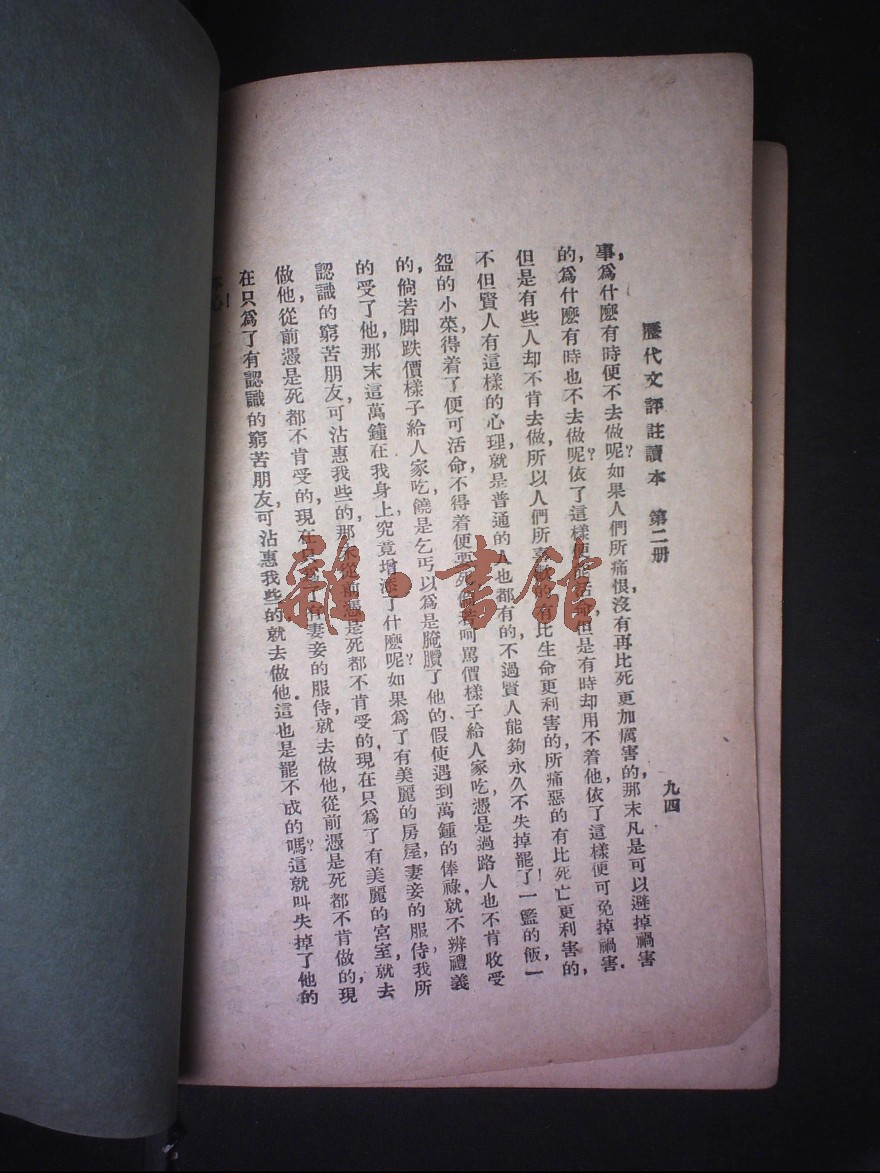 歷代文評註讀本 第二册
九四
事,爲什麼有時便不去做呢?如果人們所痛恨,沒有再比死更加厲害的,那末凡是可以避掉禍害
的,爲什麼有時也不去做呢?依了這樣便能活命,但是有時却用不着他,依了這樣便可免掉禍害.
但是有些人却不肯去做,所以人們所喜歡的,有比生命更利害的,所痛惡的有比死亡更利害的,
不但賢人有這樣的心理,就是普通的人也都有的,不過賢人能夠永久不失掉罷了!一籃的飯,一
盌的小菜,得着了便可活命,不得着便要死,倘若呵罵價樣子給人家吃,憑是過路人也不肯收受
的,倘若脚跌價樣子給人家吃,饒是乞丐,以爲是腌臢了他的,假使遇到萬鍾的俸祿,就不辨禮義
的受了他,那末這萬鍾在我身上究竟增添了什麼呢?如果爲了有美麗的房屋,妻妾的服侍,我所
認識的窮苦朋友,可沾惠我些的,那末從前憑是死都不肯受的,現在只爲了有美麗的宮室,就去
做他,從前憑是死都不肯受的,現在只爲了有妻妾的服侍,就去做他,從前憑是死都不肯做的,現
在只爲了有認識的窮苦朋友,可沾惠我些的,就去做他.這也是罷不成的嗎?這就叫失掉了他的
心!
雜·書館